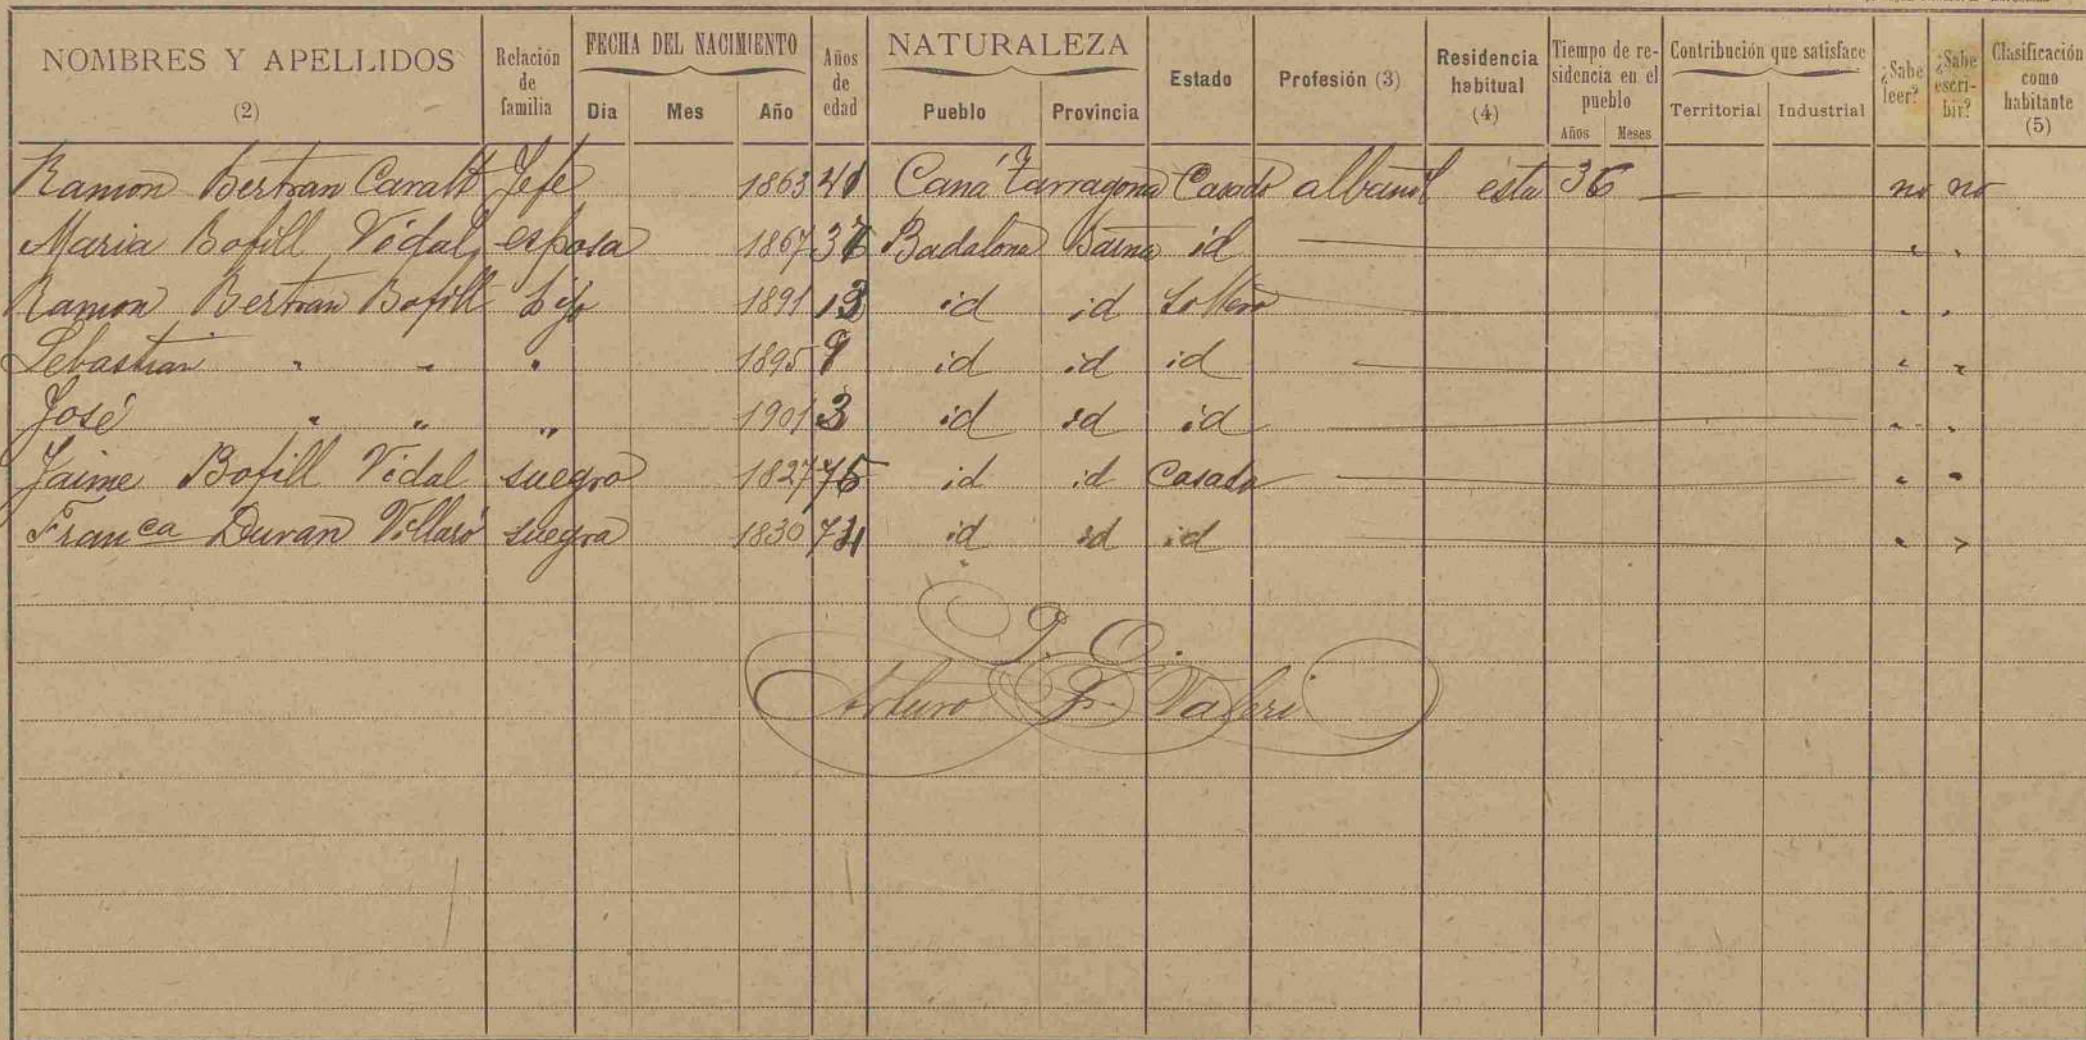 NOMBRES Y APELLIDOS (2) Relación de familia FECHA DEL NACIMIENTO Día Mes Año Años de edad NATURALEZA Pueblo Provincia Estado Profesión (3) Residencia habitual (4) Tiempo de residencia en el pueblo Años Meses Contribución que satisface Territorial Industrial ¿Sabe leer? ¿Sabe escribir? Clasificación como habitante (5)
Ramon Bertran Caralt Jefe 1863 41 Tarragona Casado albañil esta 36 — no no
Maria Bofill Vidal esposa 1867 37 Badalona Barna id — " "
Ramon Bertran Bofill hijo 1891 13 id id Soltero — " "
Sebastian " " " 1895 9 id id id — " "
José " " " 1901 3 id id id — " "
Jaime Bofill Vidal suegro 1827 id id Casado — " "
Franca Duran Villaró suegra 1830 74 id id id — " "
Arturo F. Valeri